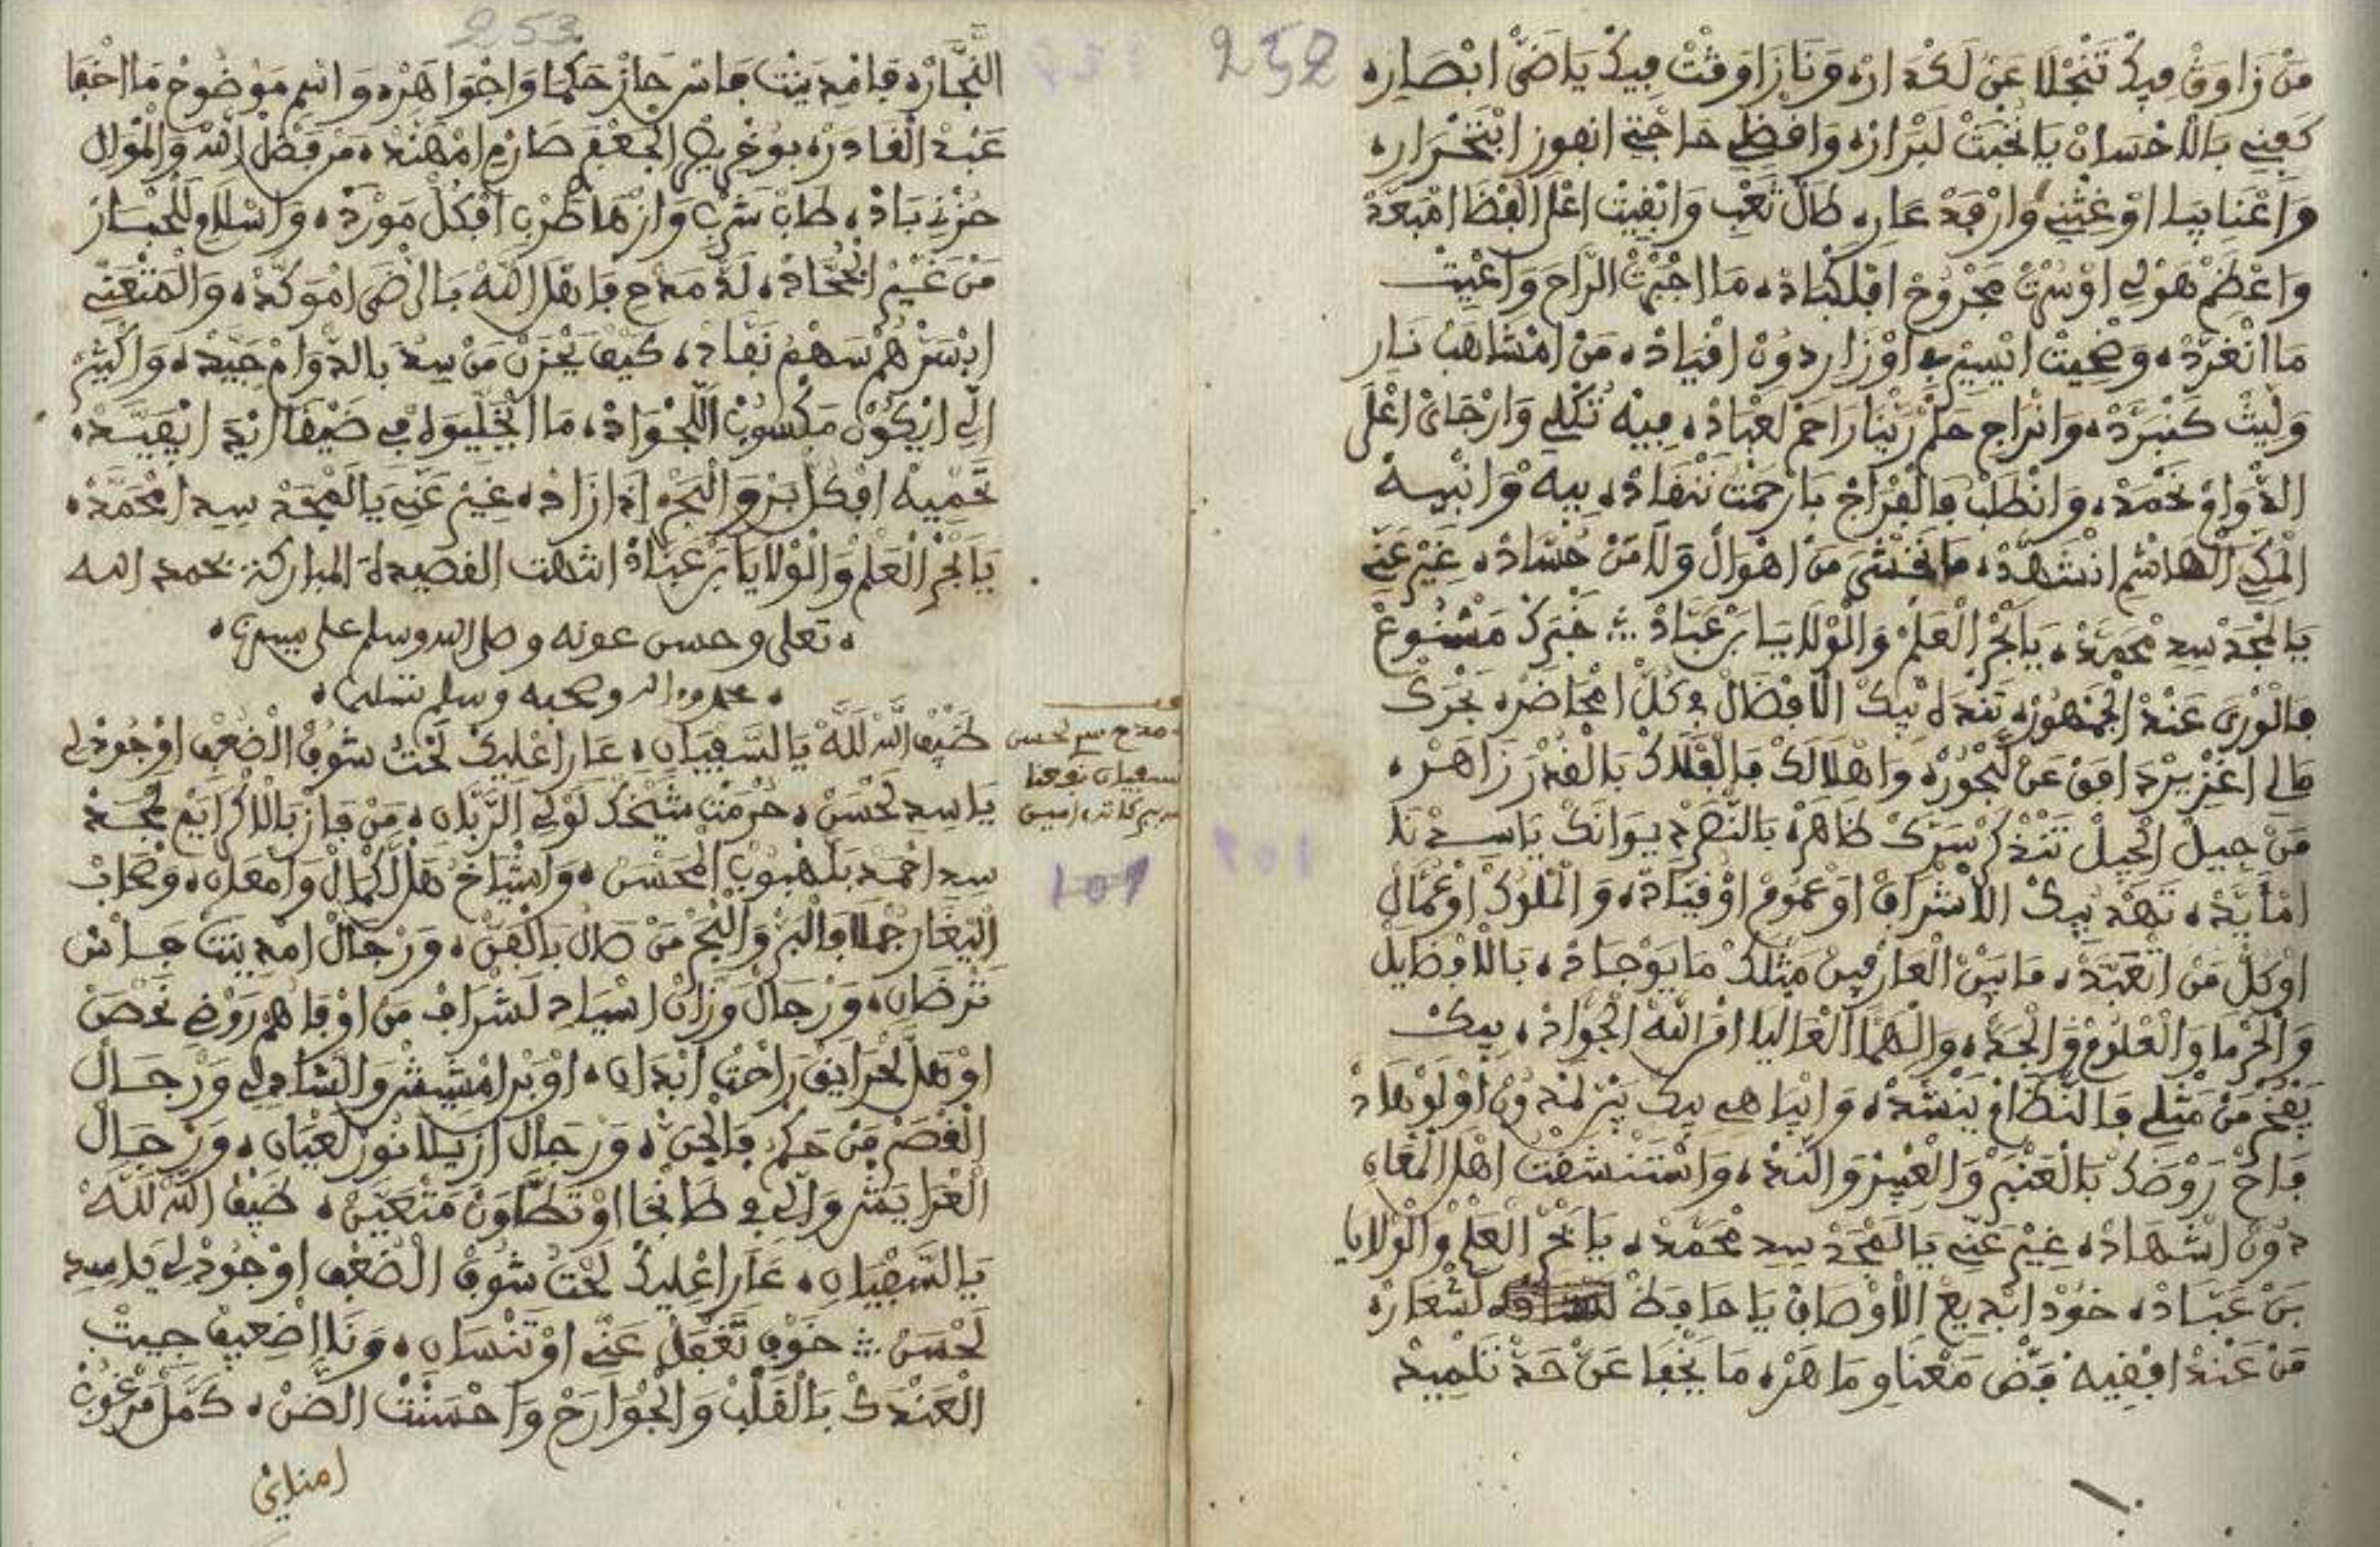 252
مَنْ زَاوَݣْ فِيكْ تَنْجْلَا عَنْ لَكْدَارْ، وَنَا زَاوَݣْتْ فِيكْ يَاضَيّْ ابْصَارِ،
كَفِنِي بَالْاحْسَانْ يَا نُخْبَتْ لَبْرَارْ، وَاقْضِي حَاجْتِي انْفُوزْ
وَاعْنَايَا اوْغِثْنِي وَارْفَدْ عَارِ، طَالْ تَعْبِي وَابْقِيتْ اعْلَى
وَاعْظَمْ هَوْلِي مَجْرُوحْ افْلَكْبَادْ، مَا اجْبَرْتْ الرَّاحَ وَاعْيِيتْ
مَا انْغَرَّدْ، وَضْحِيتْ ايْسِيرْ اوْزَارِ دُونْ اقْيَادْ، مَنْ امْشَاهْبْ نَارِ
وَلِّيتْ كَنْبَرَّدْ، وَانْرَاجِ حَلْمْ رَبْنَا رَاحَمْ لَعْبَادْ، فِيهْ تُكْلِي وَارْجَايْ اعْلَى
الدْوَامْ نَحْمَدْ، وَانْطْلَبْ فَالْفْرَاجْ بَارْحَمْتْ نَنْفَادْ، بِيهْ وَانْبِيهْ
الْمَكِّي الْهَاشْمِي انْشَهَّدْ، مَا نَخْشَى مَنْ اهْوَالْ وَلَا مَنْ حُسَّادْ، غِيرْ عَنِّي
يَالْمَجْدْ سِيدِ مْحَمَّدْ، يَا بَحْرْ الْعَلْمْ وَالْوْلَايَا بَنْ عَبَّادْ ∴ خَبْرَكْ مَشْيُوعْ
فَالْوْرَى عَنْدْ الْجَمْهُورْ، تَنْدَهْ بِيكْ الَافْضَالْ فِ كُلّْ امْحَاضَرْ، بَحْرَكْ
مَالِي اغْزِيرْ دَافَقْ عَنْ لَبْحُورْ، وَاهْلَالَكْ فَالْفْلَاكْ بَالْقَدْرْ زَاهَرْ،
مَنْ جِيلْ الْجِيلْ تَنْدْكَرْ سَرَّكْ ظَاهَرْ، بَالنَّصْرْ
امْأَيَّدْ، تَهْدْ بِيكْ الْاشْرَافْ اوْعْمُومْ اوْقِيَادْ، وَالْمْلُوكْ اوْعُمَّالْ
اوْكُلّْ مَنْ اتْعَبَّدْ، مَا بِينْ الْعَارْفِينْ مَثْلَكْ مَا يَوْجَادْ، بَالْافْضَايْلْ
وَالْحُرْمَا وَالْعْلُومْ وَالْجَدّْ، وَالْهَمَّا الْعَالْيَا امْرْ اللَّهْ الْجْوَادْ، بِيكْ
يَفْخَرْ مَنْ مَثْلِي فَالنْظَامْ يَنْشَدْ، وَايْبَاهِي بِيكْ
فَاحْ رَوْضَكْ بَالْعَنْبَرْ وَالْعْبِيرْ وَالنَّدّْ، وَاسْتَنْشْقَتْ اهْلْ الْمْعَانِ
دُونْ اشْهَادْ، غِيرْ عَنِّي يَالْمْجَدْ سِيدِ مْحَمَّدْ، يَا بَحْرْ الْعَلْمْ وَالْوْلَايَا
بَنْ عَبَّادْ، خُودْ ابْدِيعْ الْاوْصَافْ يَا حَافَظْ لَشْعَارْ،
مَنْ عَنْدْ افْقِيهْ فَضّْ مَعْنَاوِي مَاهَرْ، مَا يَخْفَا عَنْ حَدّْ تَلْمِيدْ
253
النَّجَّارْ، فَامْدِينْتْ فَاسْ حَازْ حَكْمَا وَاجْوَاهَرْ، وَاسْمِ مَوْضُوحْ مَا اخْفَا
عَبْدْ الْقَادَرْ، بُوخْرِيصْ الْجْعْفَرِ صَارَمْ امْهَنَّدْ، مَنْ فَضْلْ اللَّهْ وَالْمُوَالِ
حُزْنِي بَادْ، طَابْ شَرْبِي وَازْهَا طَرْبِي افْكُلّْ مَوْرَدْ، وَاسْلَامِي لَلْحْبَارْ
مَنْ غِيرْ اجْحَادْ، لَدّْ مَدْحِي فَاهْلْ اللَّهْ بَالرّْضَى امْوَكَّدْ، وَالْمَتْعَنِّي
ابْسَرْهُمْ سَهْمُ نَفَّادْ، كِيفْ يَحْزَنْ مَنْ سِيدُ بَالدْوَامْ جَيَّدْ،
الِّي ايْكُونْ مَكْسُوبْ اللَّجْوَادْ، مَا ايْخَلِّيوَهْ فِي ضِيقَا
تَحْمِيهْ افْكُلّْ بَرّْ وَالْبْحَرْ إِدَا زَادْ، غِيرْ عَنِّي يَالْمْجَدْ سِيدِ امْحَمَّدْ،
يَا بَحْرْ الْعَلْمْ وَالْوْلَايَا بَنْ عَبَّادْ انتهت القصيدة المباركة بحمد الله
، تعلى وحسن عونه وصلى الله وسلم على سيدنا،
، محمد وءاله وصحبه وسلم تسليما،
ضِيفْ اللَّهْ لَلَّهْ يَالسَّفْيَانِ، عَارَ اعْلِيكْ لَحْتْ شُوفْ الْضُعْفِ اوْجُودْلِي
يَاسِيدِ لَحْسَنْ، حُرْمَتْ شَيْخَكْ لَوْلِي الرَّبَّانِ، مَنْ فَازْ بَالْاكْرَايَمْ مُحْسَنْ
سِيدِ احْمَدْ بَلْهْبُوبْ الْمَحْسَنْ، وَاشْيَاخُ هَلْ لَكْمَالْ وَامْعَانِ، وَصْحَابْ
الْيْغَارْ جُمْلَا فَالْبَرّْ وَالْبْحَرْ مَنْ صَالْ بَالْفَنّْ، وَرْجَالْ امْدِينْتْ فَاسْ
تَرْضَانِ، وَرْجَالْ وَزَّانْ اسْيَادِ لَشْرَافْ مَنْ اوْفَاهُمْ رَوْضِي نَحْصَنْ
اوْهَلْ لَحْرَايَقْ رَاحْتْ ابْدَانِ، اوْبَنْ امْشِيشْ وَالشَّادِلِي وَرْجَالْ
الْقْصَرْ مَنْ حَكْمُ فَالْجَنّْ، وَرْجَالْ ازِّيلَا نُورْ لَعْيَانِ، وَرْجَالْ
الْعْرَايَشْ وَالِّي فِ طَانْجَا اوْتَطَّاوَنْ مَتْعَيَّنْ، ضِيفْ اللَّهْ لَلَّهْ
يَالسَّفْيَانِ، عَارَ اعْلِيكْ لَحْتْ شُوفْ الْضُعْفِ اوْجُودْلِي يَاسِيدِ
لَحْسَنْ ∴ خَوْفِي تَغْفَلْ عَنِّي اوْتَنْسَانِ، وَنَا اضْعِيفْ جِيتْ
الْعَنْدَكْ بَالْقَلْبْ وَالْجْوَارَحْ وَاحْسَنْتْ الضَّنّْ، كَمَّلْ مَرْغُوبْ
امنايي
مدح سيد لحسن
سفيان نفعنا
ببركاته امين
101